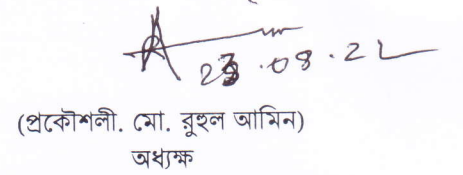 23.08.22
(প্রকৌশলী. মো. রুহুল আমিন)
অধ্যক্ষ